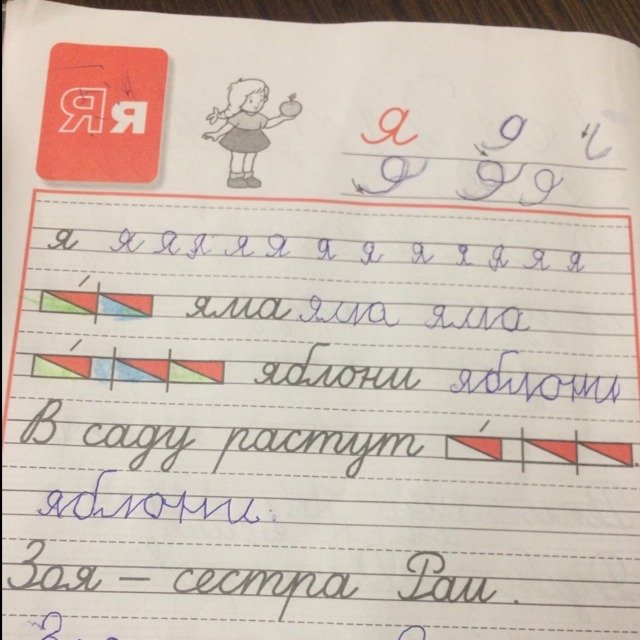 Яя
я
я я я я я я я я я я я я
яма яма яма
яблони яблони
В саду растут
яблони.
Зоя – сестра Раи.